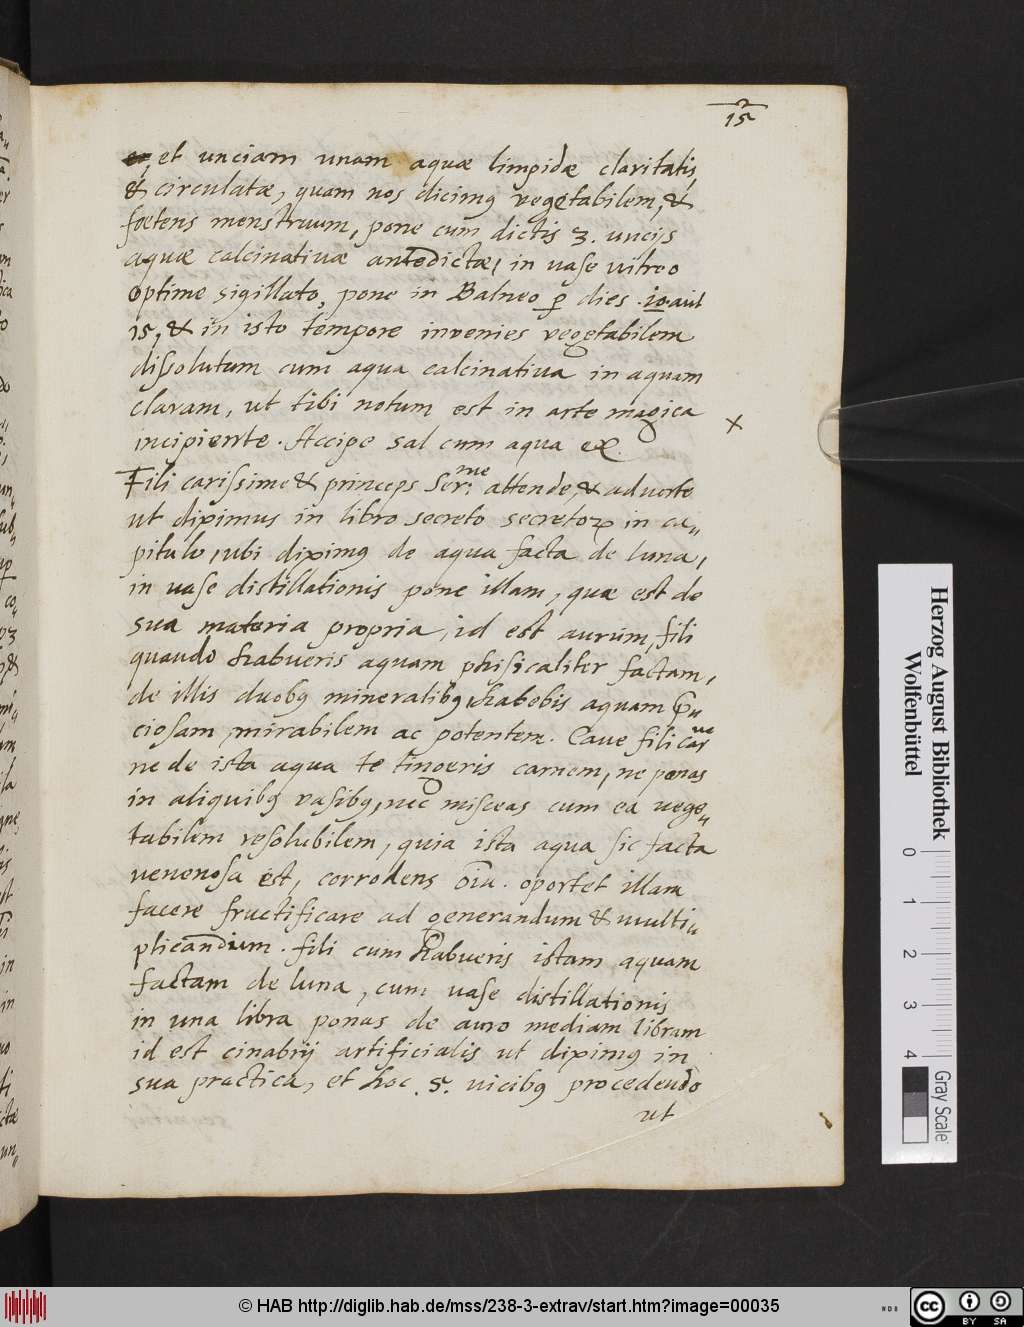 15
et unciam unam aquæ limpidæ claritatis,
& circulatæ, quam nos dicimꝰ vegetabilem, &
fœtens menstruum, pone cum dictis 3. uncijs
aquæ calcinativæ antedictæ, in vase vitreo
optime sigillato, pone in Balneo ꝑ dies .10. aut
15, & in isto tempore invenies vegetabilem
dissolutum cum aqua calcinativa in aquam
claram, ut tibi notum est in arte magica
incipiente. Accipe sal cum aqua ex.
Fili carissime & princeps Ser.me attende, & adverte
ut diximus in libro secreto secretoꝝ in ca„
pitulo, ubi diximꝰ de aqua facta de luna,
in vase distillationis pone illam, quæ est de
sua materia propria, id est aurum, fili
quando habueris aquam phisicaliter factam,
de illis duobꝰ mineralibꝰ, habebis aquam
ciosam, mirabilem ac potentem. Cave fili car
ne de ista aqua te tingeris carnem, ne ponas
in aliquibꝰ vasibꝰ, nec misceas cum ea vege„
tabilem resolubilem, quia ista aqua sic facta
venenosa est, corrodens oīa. oportet illam
facere fructificare ad generandum & multi„
plicandum. fili cum habueris istam aquam
factam de luna, cum vase distillationis
in una libra ponas de auro mediam libram
id est cinabrij artificialis ut diximꝰ in
sua practica, et hoc .5. vicibꝰ procedendo
ut
Herzog August Bibliothek
Wolfenbüttel
0 1 2 3 4
Gray Scale
© HAB http://diglib.hab.de/mss/238-3-extrav/start.htm?image=00035
cc BY SA